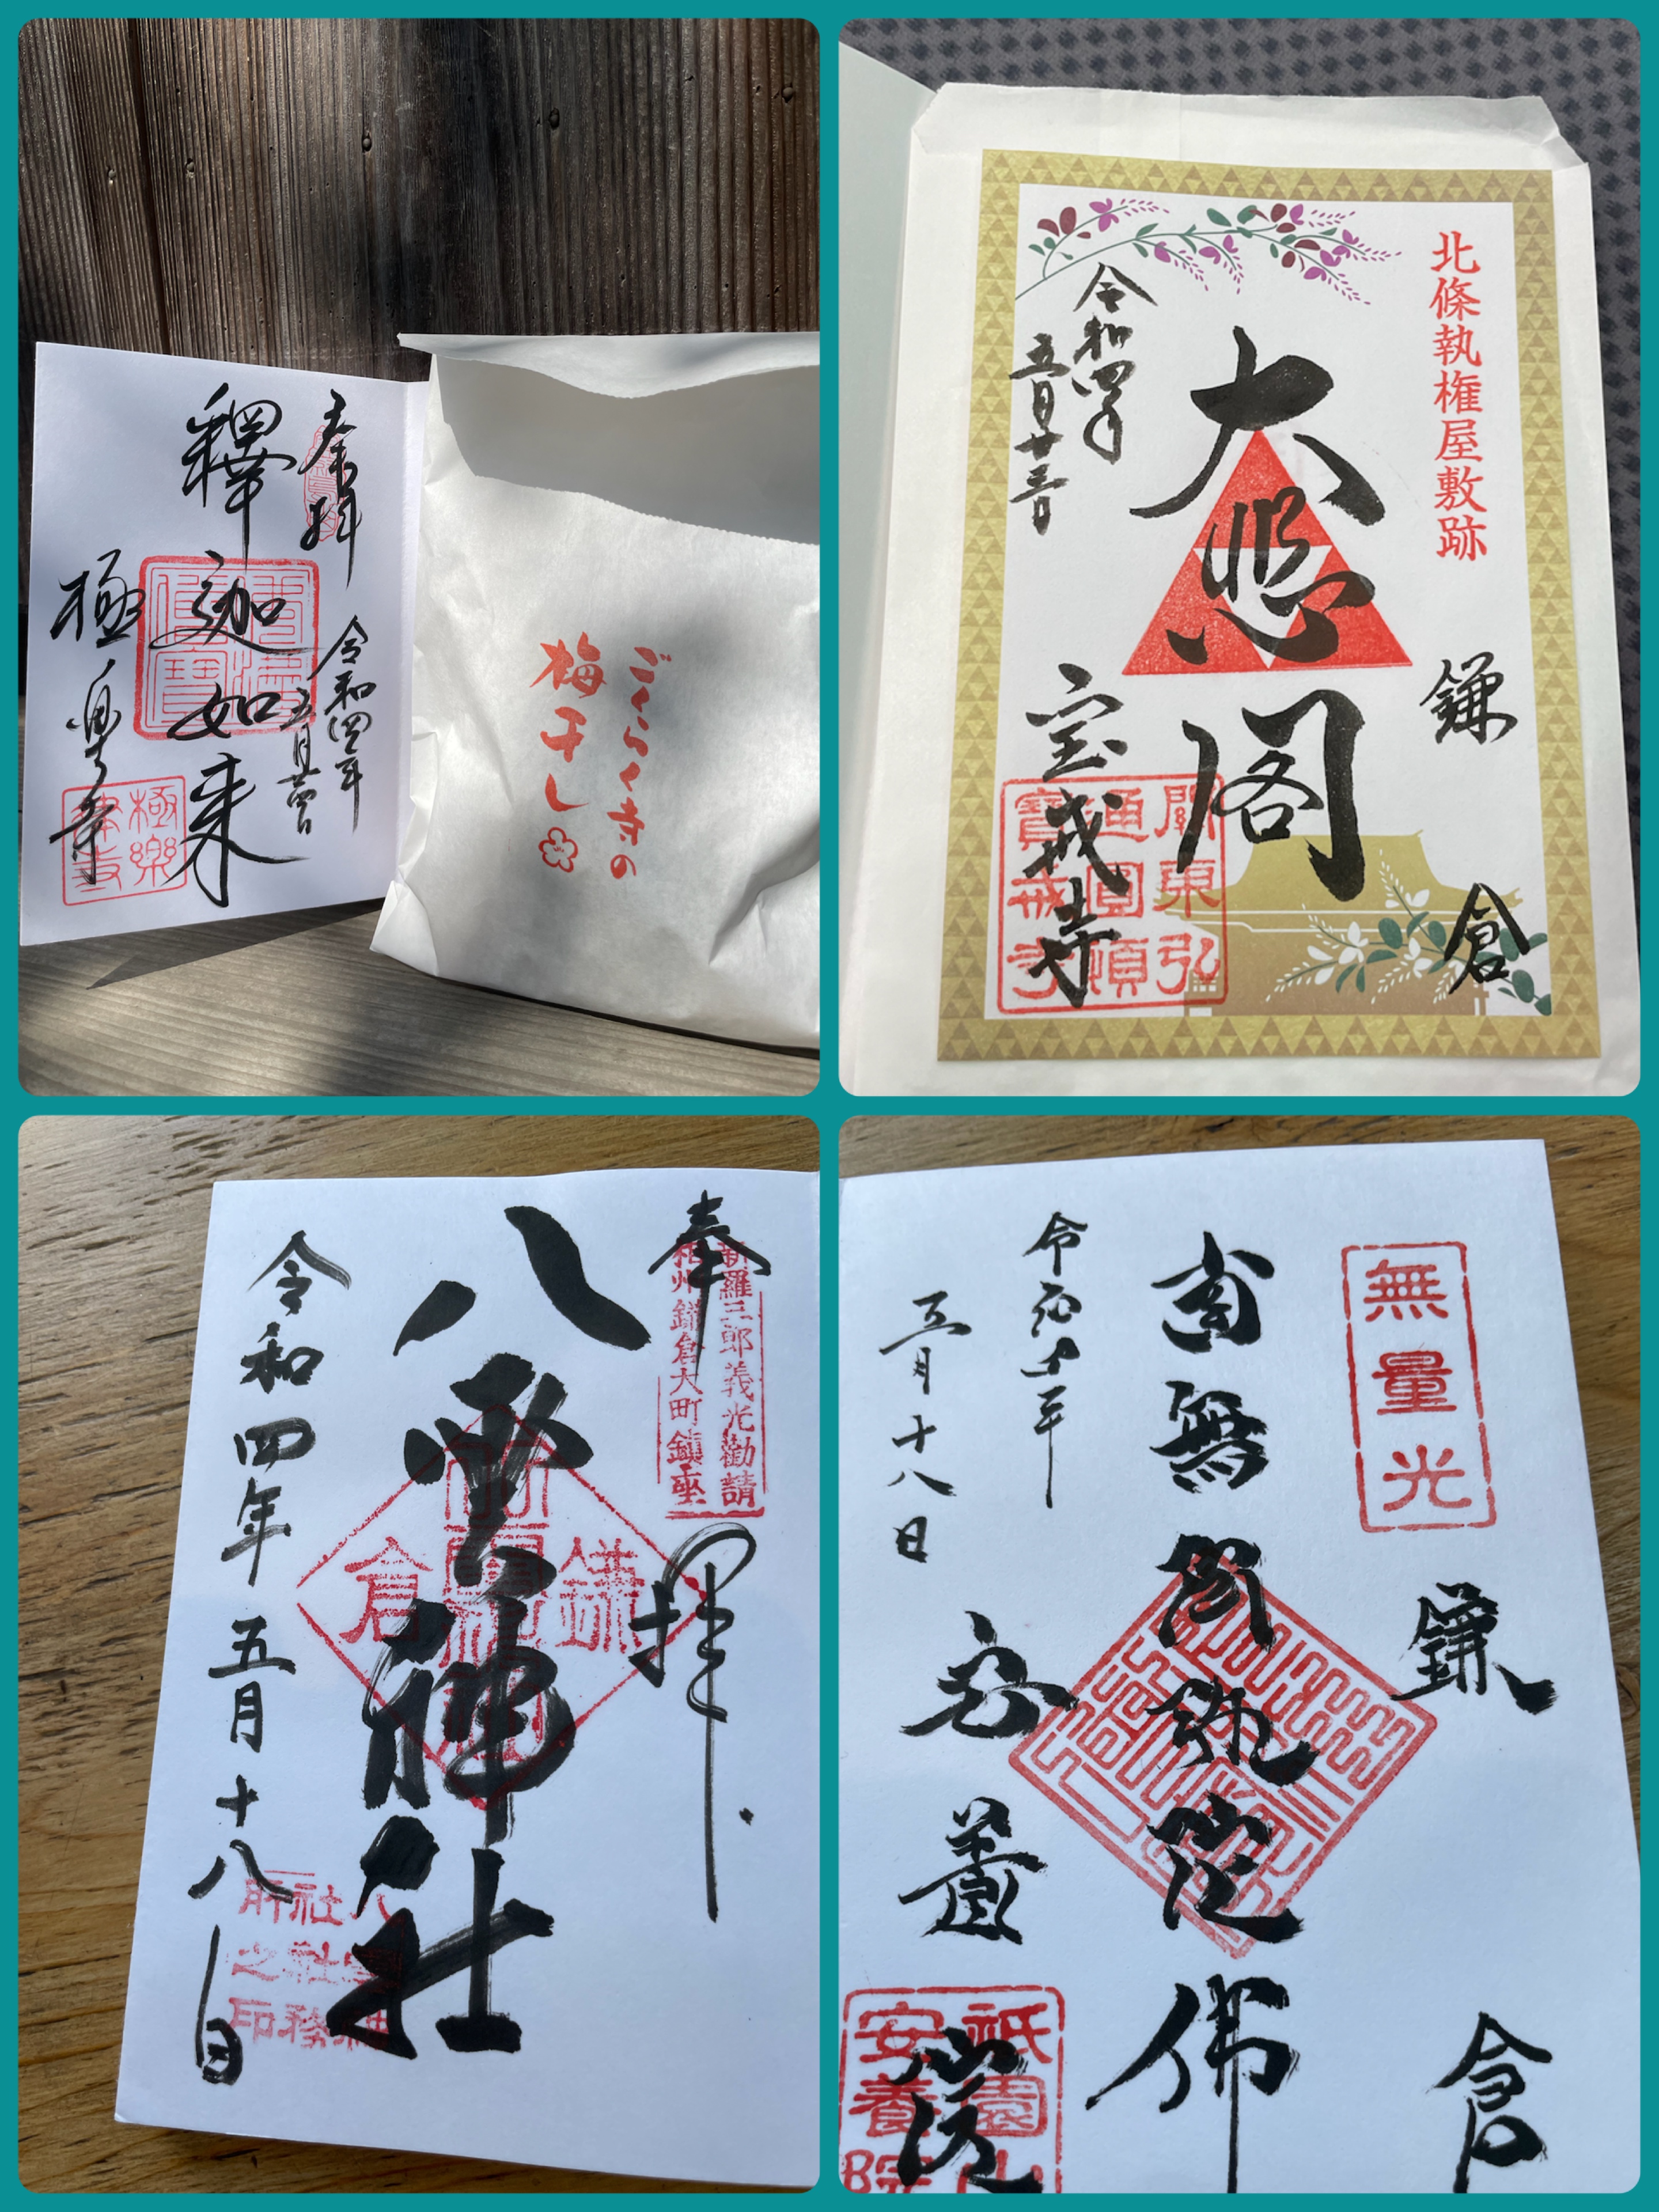 奉拝
令和四年
五月廿四日
釋迦如来
極楽寺
極樂
律寺
ごくらく寺の
梅干し
北條執権屋敷跡
鎌倉
大悲閣
令和四年
五月廿三日
宝戒寺
關東弘
通圓頓
寶戒寺
奉拝
新羅三郎義光勧請
相州鎌倉大町鎮座
八雲神社
鎌倉
令和四年五月十八日
八雲神
社社務
所之印
無量光
鎌倉
南無阿弥陀佛
令和四年
五月十八日
安養院
祇園山
安養院